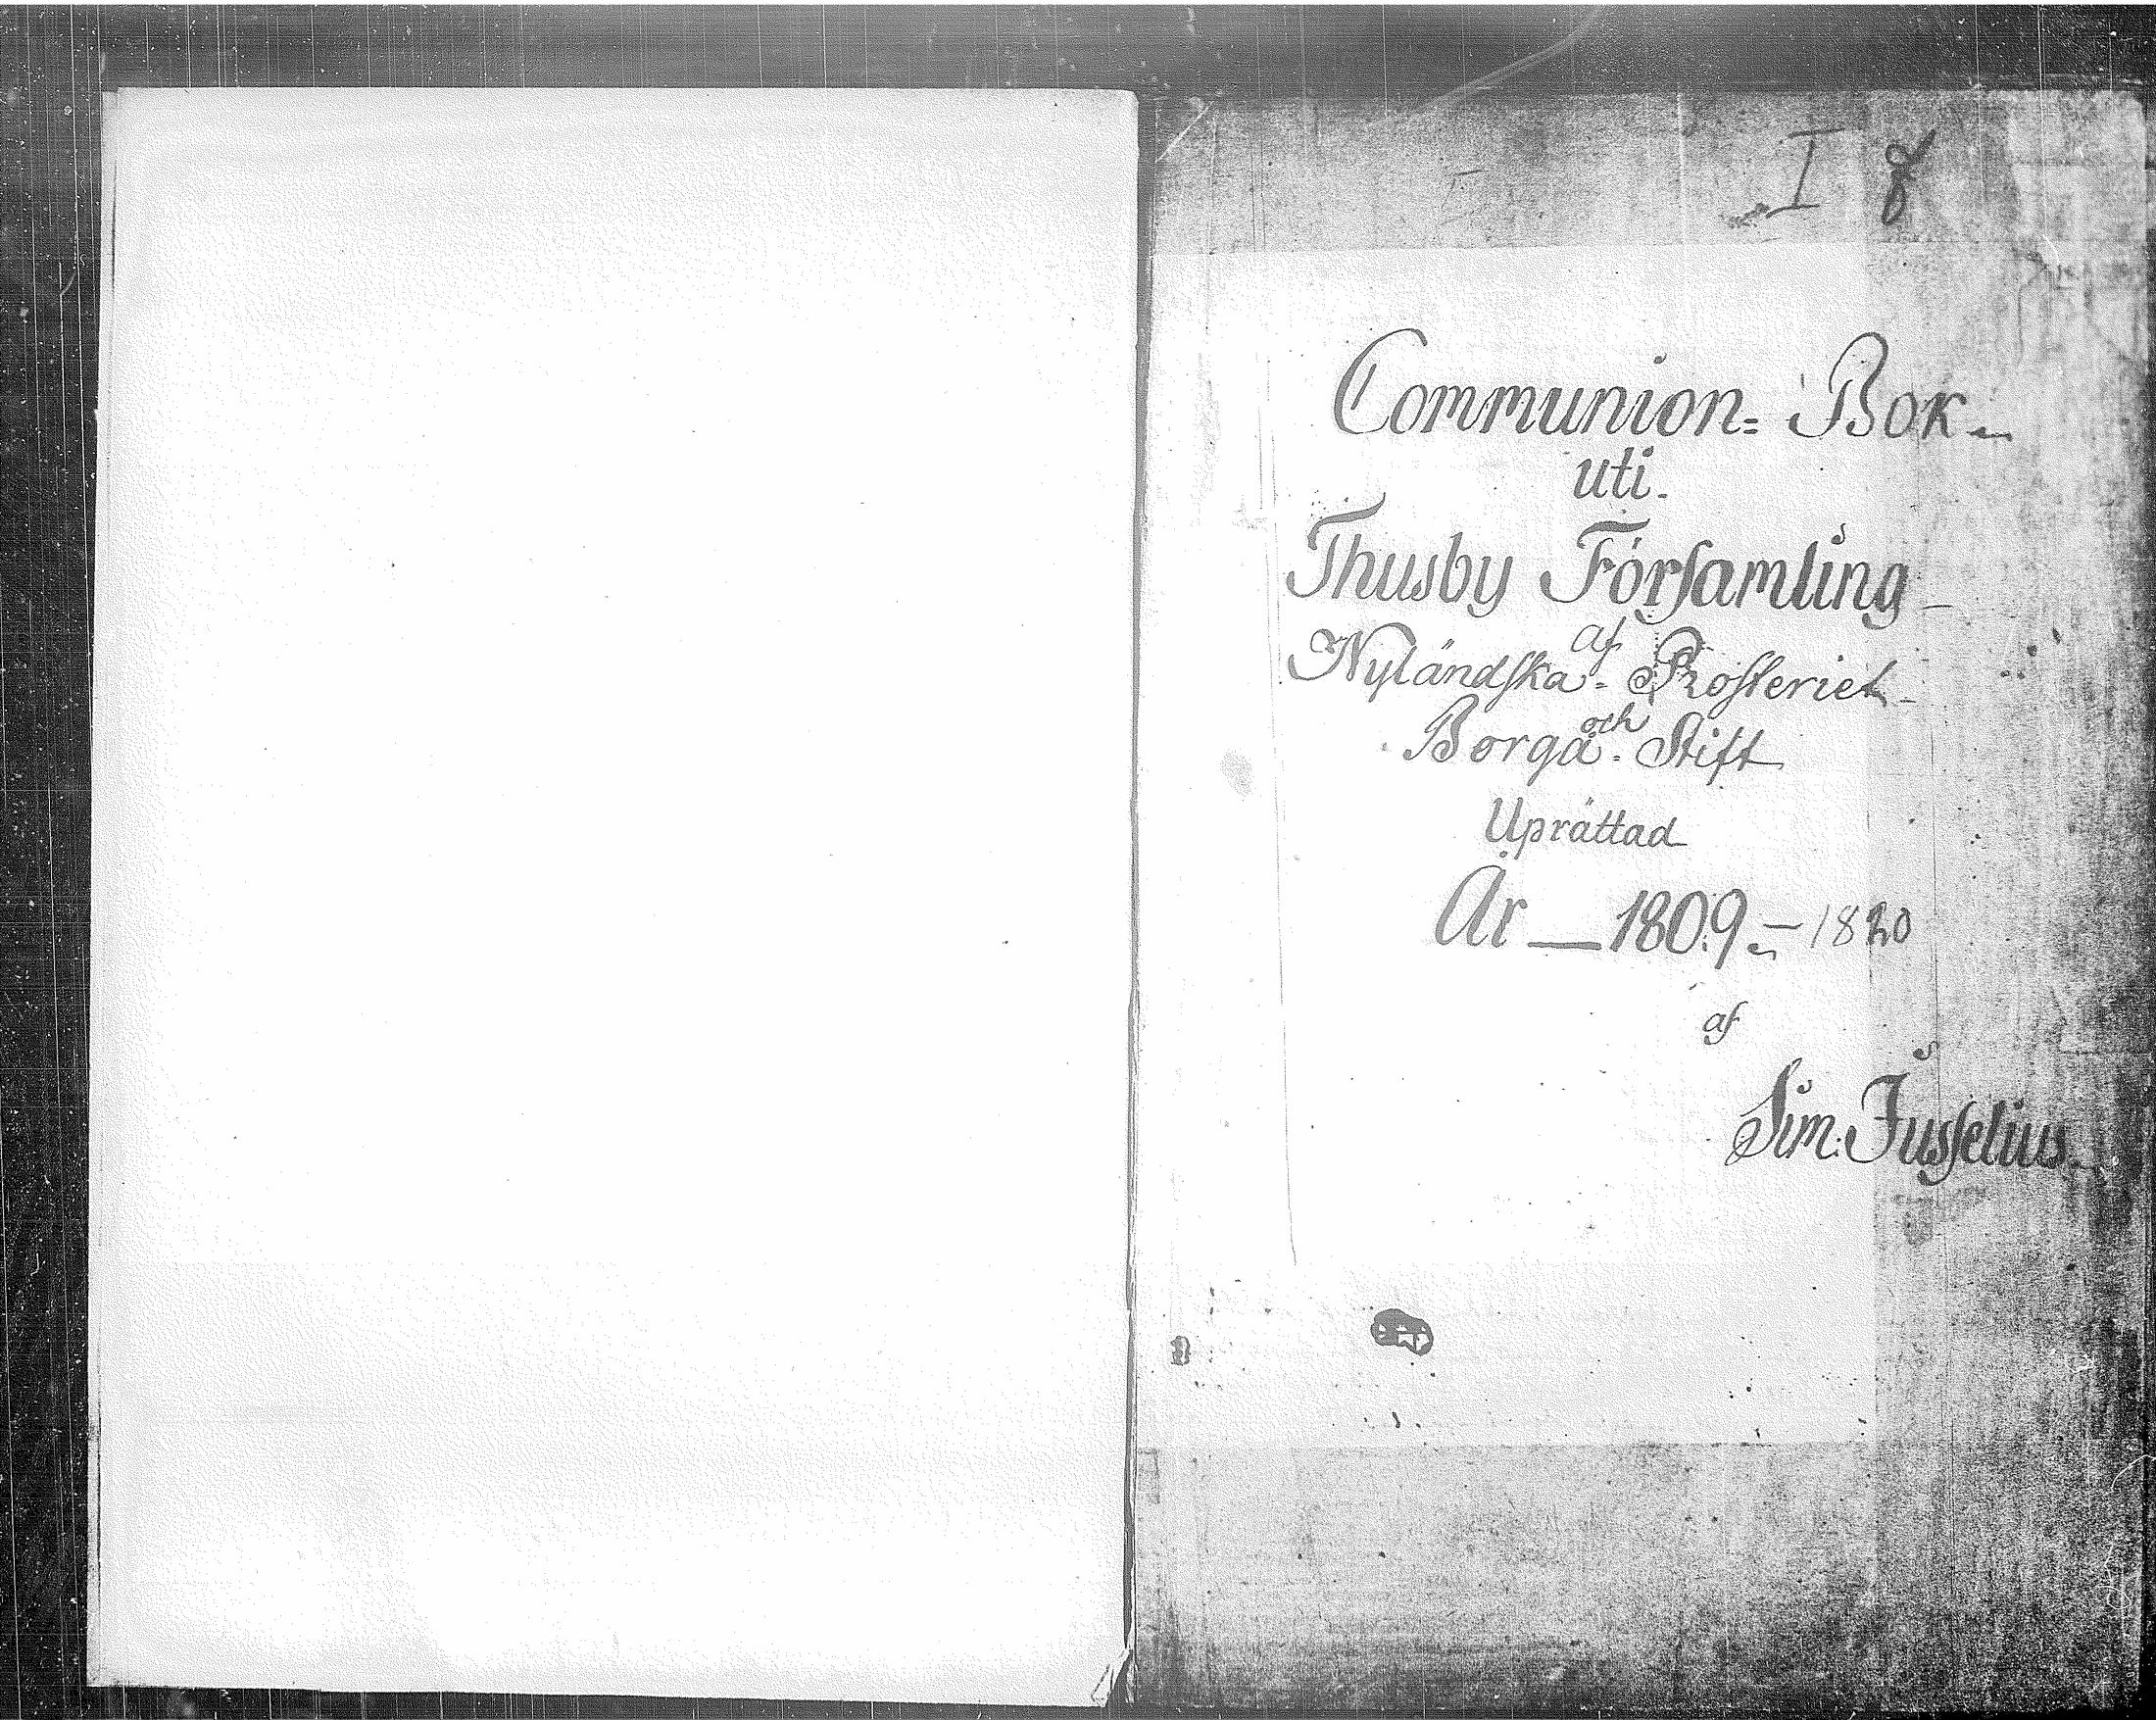 I 8
Communion= Bok
uti.
Thusby Församling
af
Nyländska= Prosteriet
och
Borgå= Stift
Uprättad
År — 1809 — 1820
af
Sim: Jusselius.